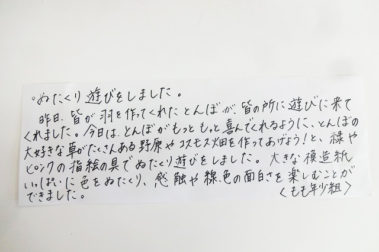 。ぬたくり遊びをしました。
昨日、皆が羽を作ってくれたとんぼが皆の所に遊びに来て
くれました。今日は、とんぼがもっともっと喜んでくれるように、とんぼの
大好きな草がたくさんある野原やコスモス畑を作ってあげよう!と、緑や
ピンクの指絵の具でぬたくり遊びをしました。大きな模造紙
いっぱいに色をぬたくり、感触や線、色の面白さを楽しむことが
できました。 〈もも年少組〉